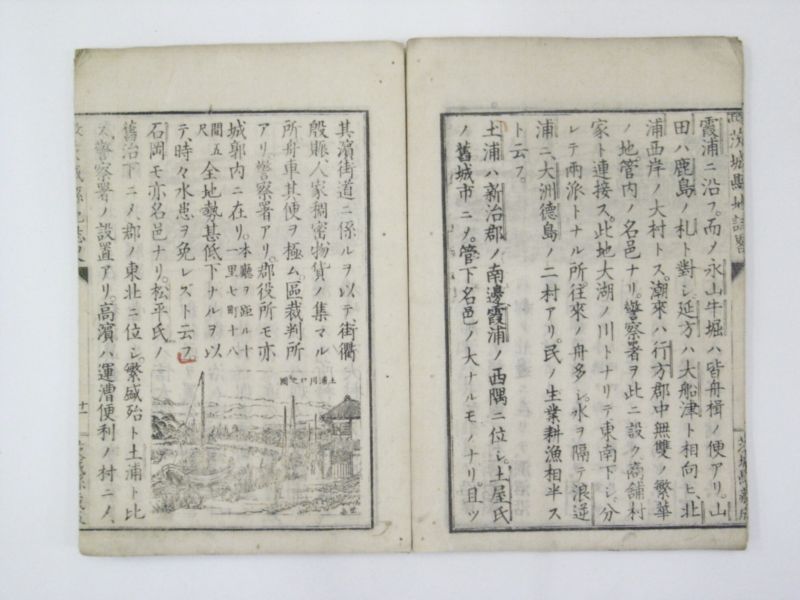 茨城縣地誌略
霞浦ニ沿フ。而ノ永山牛堀ハ皆舟楫ノ便アリ。山
田ハ鹿島ノ札ト對シ。延方ハ大船津ト相向ヒ、北
浦西岸ノ大村トス。潮來ハ行方郡中無雙ノ繁華
ノ地管内ノ名邑ナリ。警察署ヲ此ニ設ク商舗村
家ト連接ス。此地大湖ノ川トナリテ東南下シ。分
レテ兩派トナル所往來ノ舟多シ。水ヲ隔テ浪逆
浦ニ、大洲德島ノ二村アリ。民ノ生業耕漁相半ス
ト云フ。
土浦ハ新治郡ノ南邊霞浦ノ西隅ニ位シ。土屋氏
ノ舊城市ニメ。管下名邑ノ大ナルモノナリ。且ツ
其濱街道ニ係ルヲ以テ、街衢
殷賑人家稠密物貨ノ集マル
所舟車其便ヲ極ム。區裁判所
アリ。警察署アリ。郡役所モ亦
城郭内ニ在リ。本廳ヲ距ル十一里七町十八
間五尺全地勢甚低下ナルヲ以
テ、時々水患ヲ免レズト云フ
石岡モ亦名邑ナリ。松平氏ノ
舊治下ニメ、郡ノ東北ニ位シ。繁盛殆ト土浦ト比
ス。警察署ノ設置アリ。高濱ハ運漕便利ノ村ニノ、
土浦川口之圖
廿一